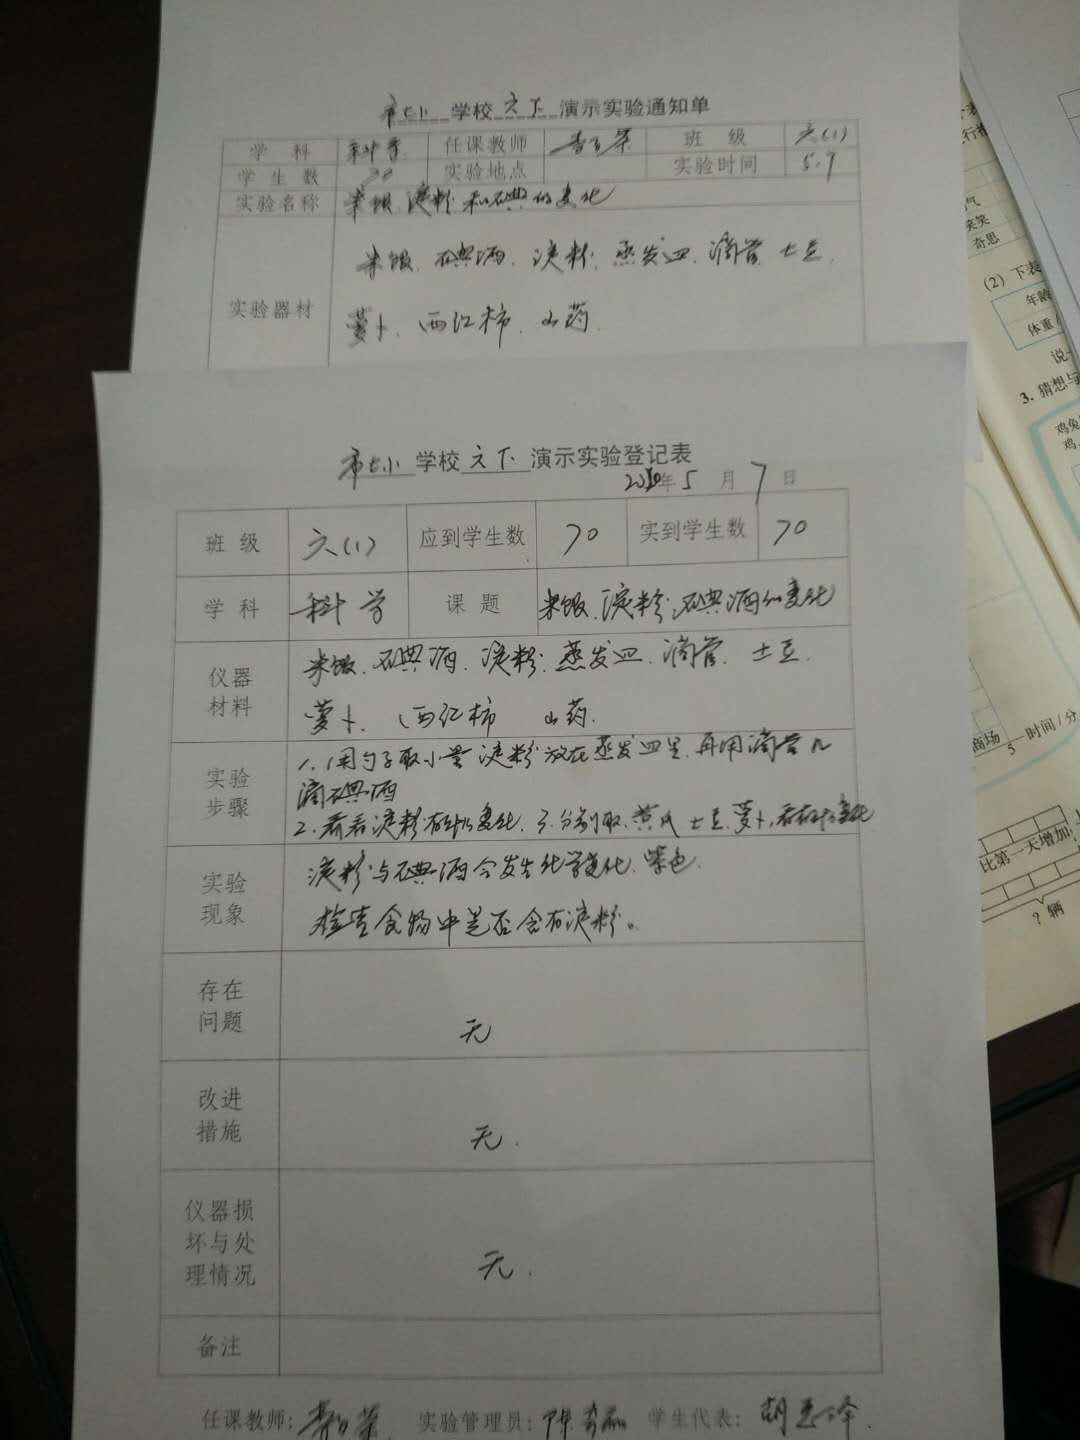 市七小 学校 六下 演示实验通知单
学 科 科学 任课教师 班 级 六(1)
学 生 数 70 实验地点 实验时间 5.7
实验名称 米饭、淀粉和碘的变化
实验器材 米饭、碘酒、淀粉、蒸发皿、滴管、土豆、
萝卜、西红柿、山药.
市七小 学校 六下 演示实验登记表
年 5 月 7 日
班 级 六(1) 应到学生数 70 实到学生数 70
学 科 科学 课 题 米饭、淀粉、碘酒的变化
仪器材料 米饭、碘酒、淀粉、蒸发皿、滴管、土豆、
萝卜、西红柿 山药.
实验步骤 1.用勺子取小量淀粉放在蒸发皿里,再用滴管几
滴碘酒
2.看看淀粉有什么变化. 3.分别取 土豆、萝卜,看有什么变化
实验现象 淀粉与碘酒会发生化学变化、紫色.
检查食物中是否含有淀粉。
存在问题 无
改进措施 无.
仪器损坏与处理情况 无.
备注
任课教师: 实验管理员: 学生代表:
(2) 下表
年龄
体重/
说一
3. 猜想与
鸡兔
鸡
气
笑笑
奇思
商场
5 时间/分
比第一天增加
? 辆